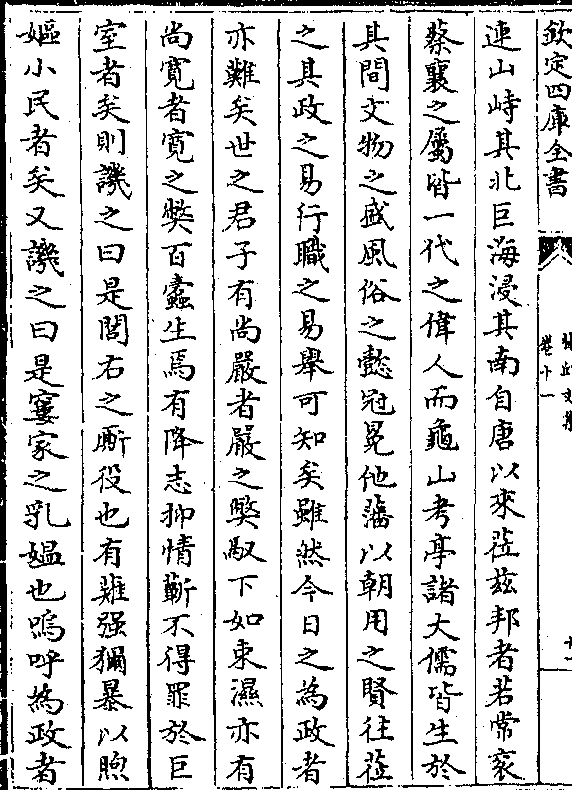 欽定四庫全書
卷十一
連山峙其北巨海浸其南自唐以來莅兹邦者若常衮
蔡襄之屬皆一代之偉人而龜山考亭諸大儒皆生於
其間文物之盛風俗之懿冠冕他藩以朝用之賢往莅
之其政之易行職之易舉可知矣雖然今日之為政者
亦難矣世之君子有尚嚴者嚴之獘馭下如束濕亦有
尚寛者寛之獘百蠧生焉有降志抑情蘄不得罪於巨
室者矣則譏之曰是閭右之厮役也有摧强獮暴以煦
嫗小民者矣又譏之曰是窶家之乳媪也嗚呼為政者